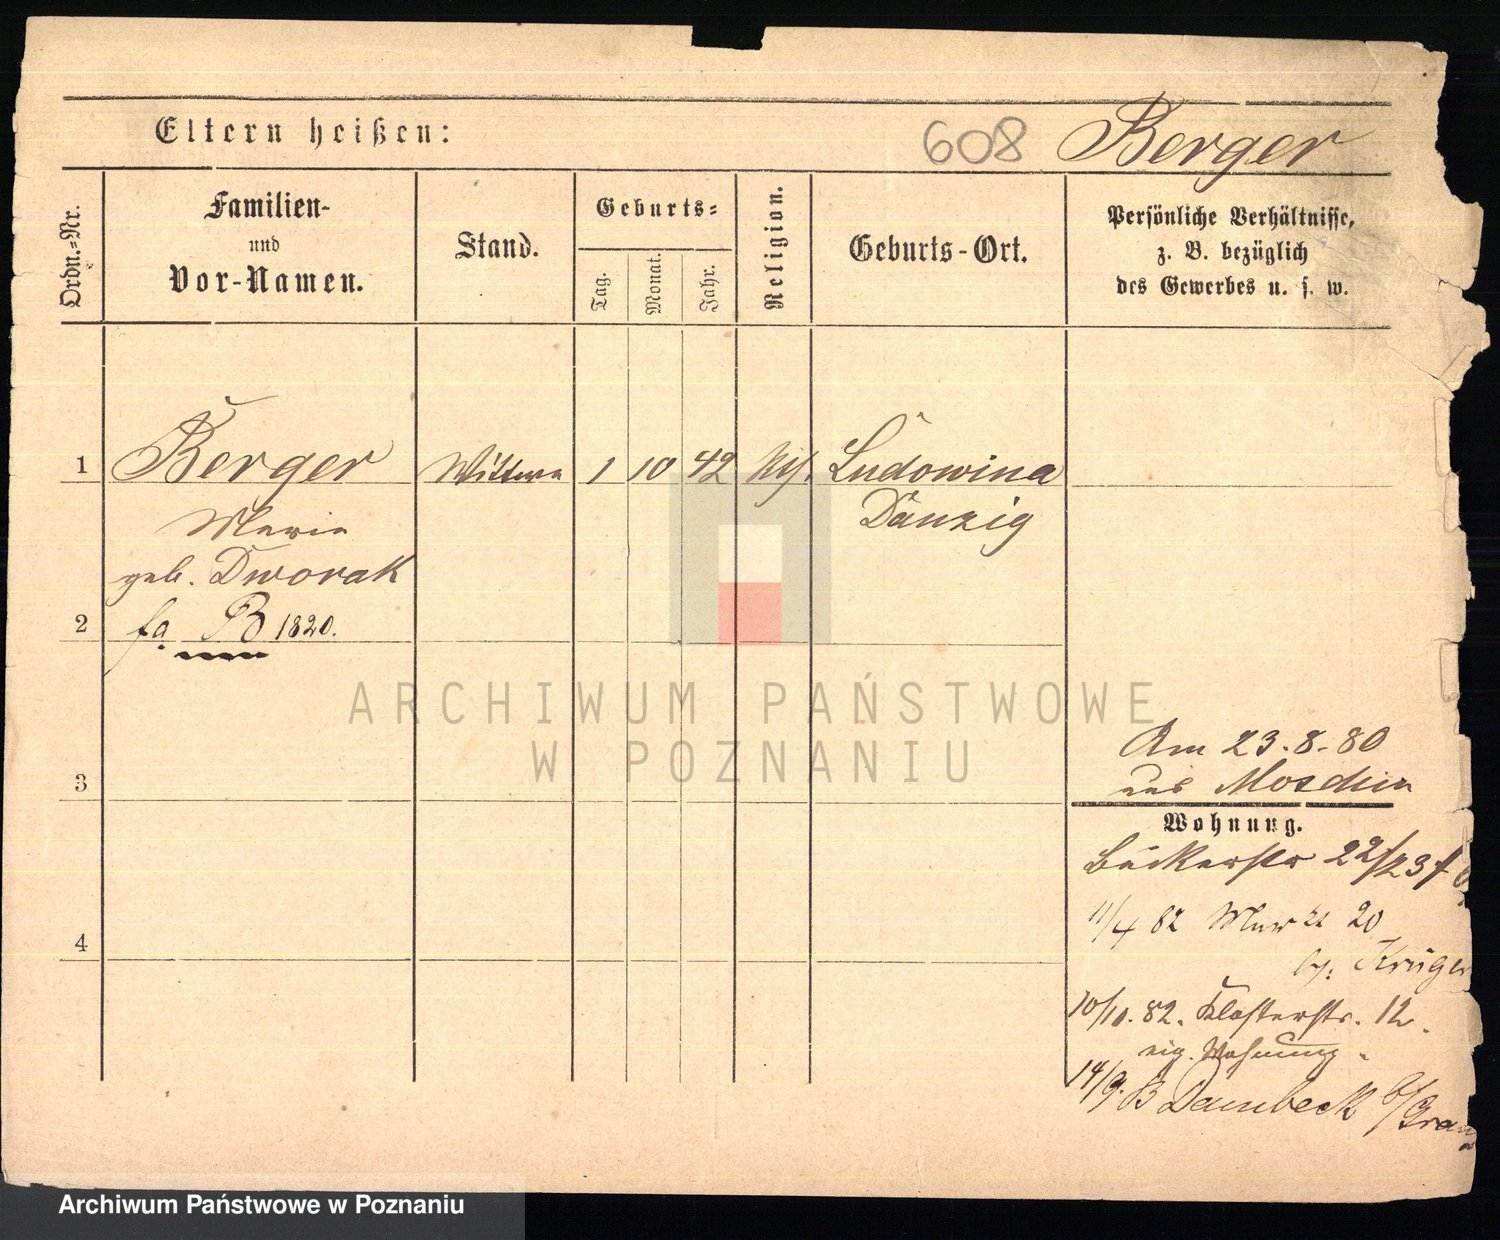 Eltern heißen:
608 Berger
Ordn.=Nr.
Familien-
und
Vor-Namen.
Stand.
Geburts=
Tag.
Monat.
Jahr.
Religion.
Geburts-Ort.
Persönliche Verhältnisse,
z. B. bezüglich
des Gewerbes u. s. w.
1 Berger Wittwe 1 10 42 Ludowina
Marie Danzig
geb. Dworak
2 fq B 1820.
3
4
Am 23.8.80
aus Moschin
Wohnung.
Bäckerstr 22/23
11/4 82 Markt 20
b. Krüger
10/10. 82. Klosterstr. 12.
eig. Wohnung.
14/9. B Dambeck b/Grau
ARCHIWUM PAŃSTWOWE
W POZNANIU
Archiwum Państwowe w Poznaniu